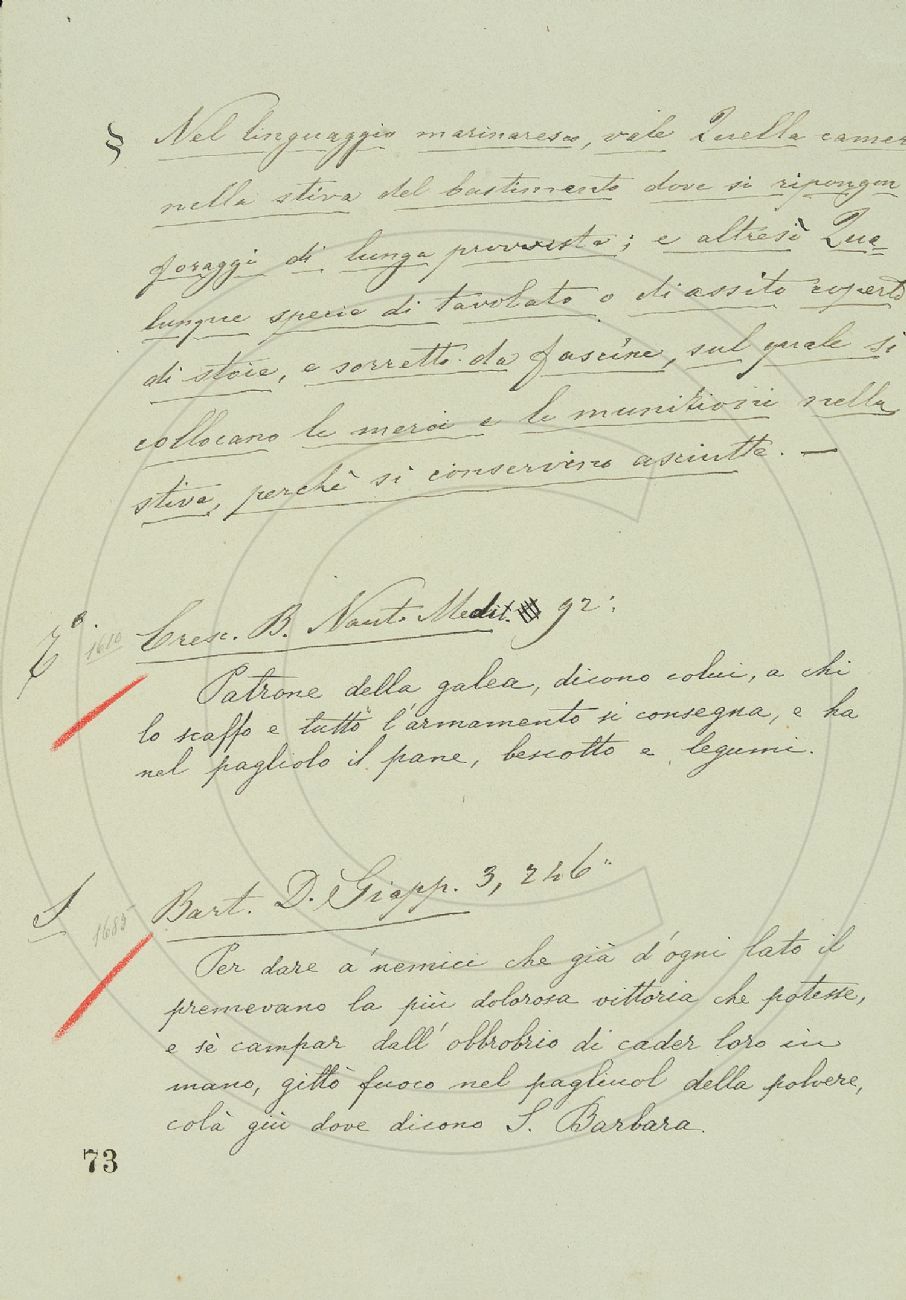 § Nel linguaggio marinaresco, vale Quella camer
nella stiva del bastimento dove si ripongon
foraggi di lunga provvista; e altresì Qua-
lunque specie di tavolato o di assito coperto
di stoie, e sorretto da fascine, sul quale si
collocano le merci e le munizioni nella
stiva, perchè si conservino asciutte. —
1610 Cresc. B. Naut. Medit. 92:
Patrone della galea, dicono colui, a chi
lo scaffo e tutto l'armamento si consegna, e ha
nel pagliolo il pane, bescotto e legumi.
S 1685 Bart. D. Giapp. 3, 246:
Per dare a' nemici che già d'ogni lato il
premevano la più dolorosa vittoria che potesse,
e sè campar dall'obbrobrio di cader loro in
mano, gittò fuoco nel pagliuol della polvere,
colà giù dove dicono S. Barbara.
73